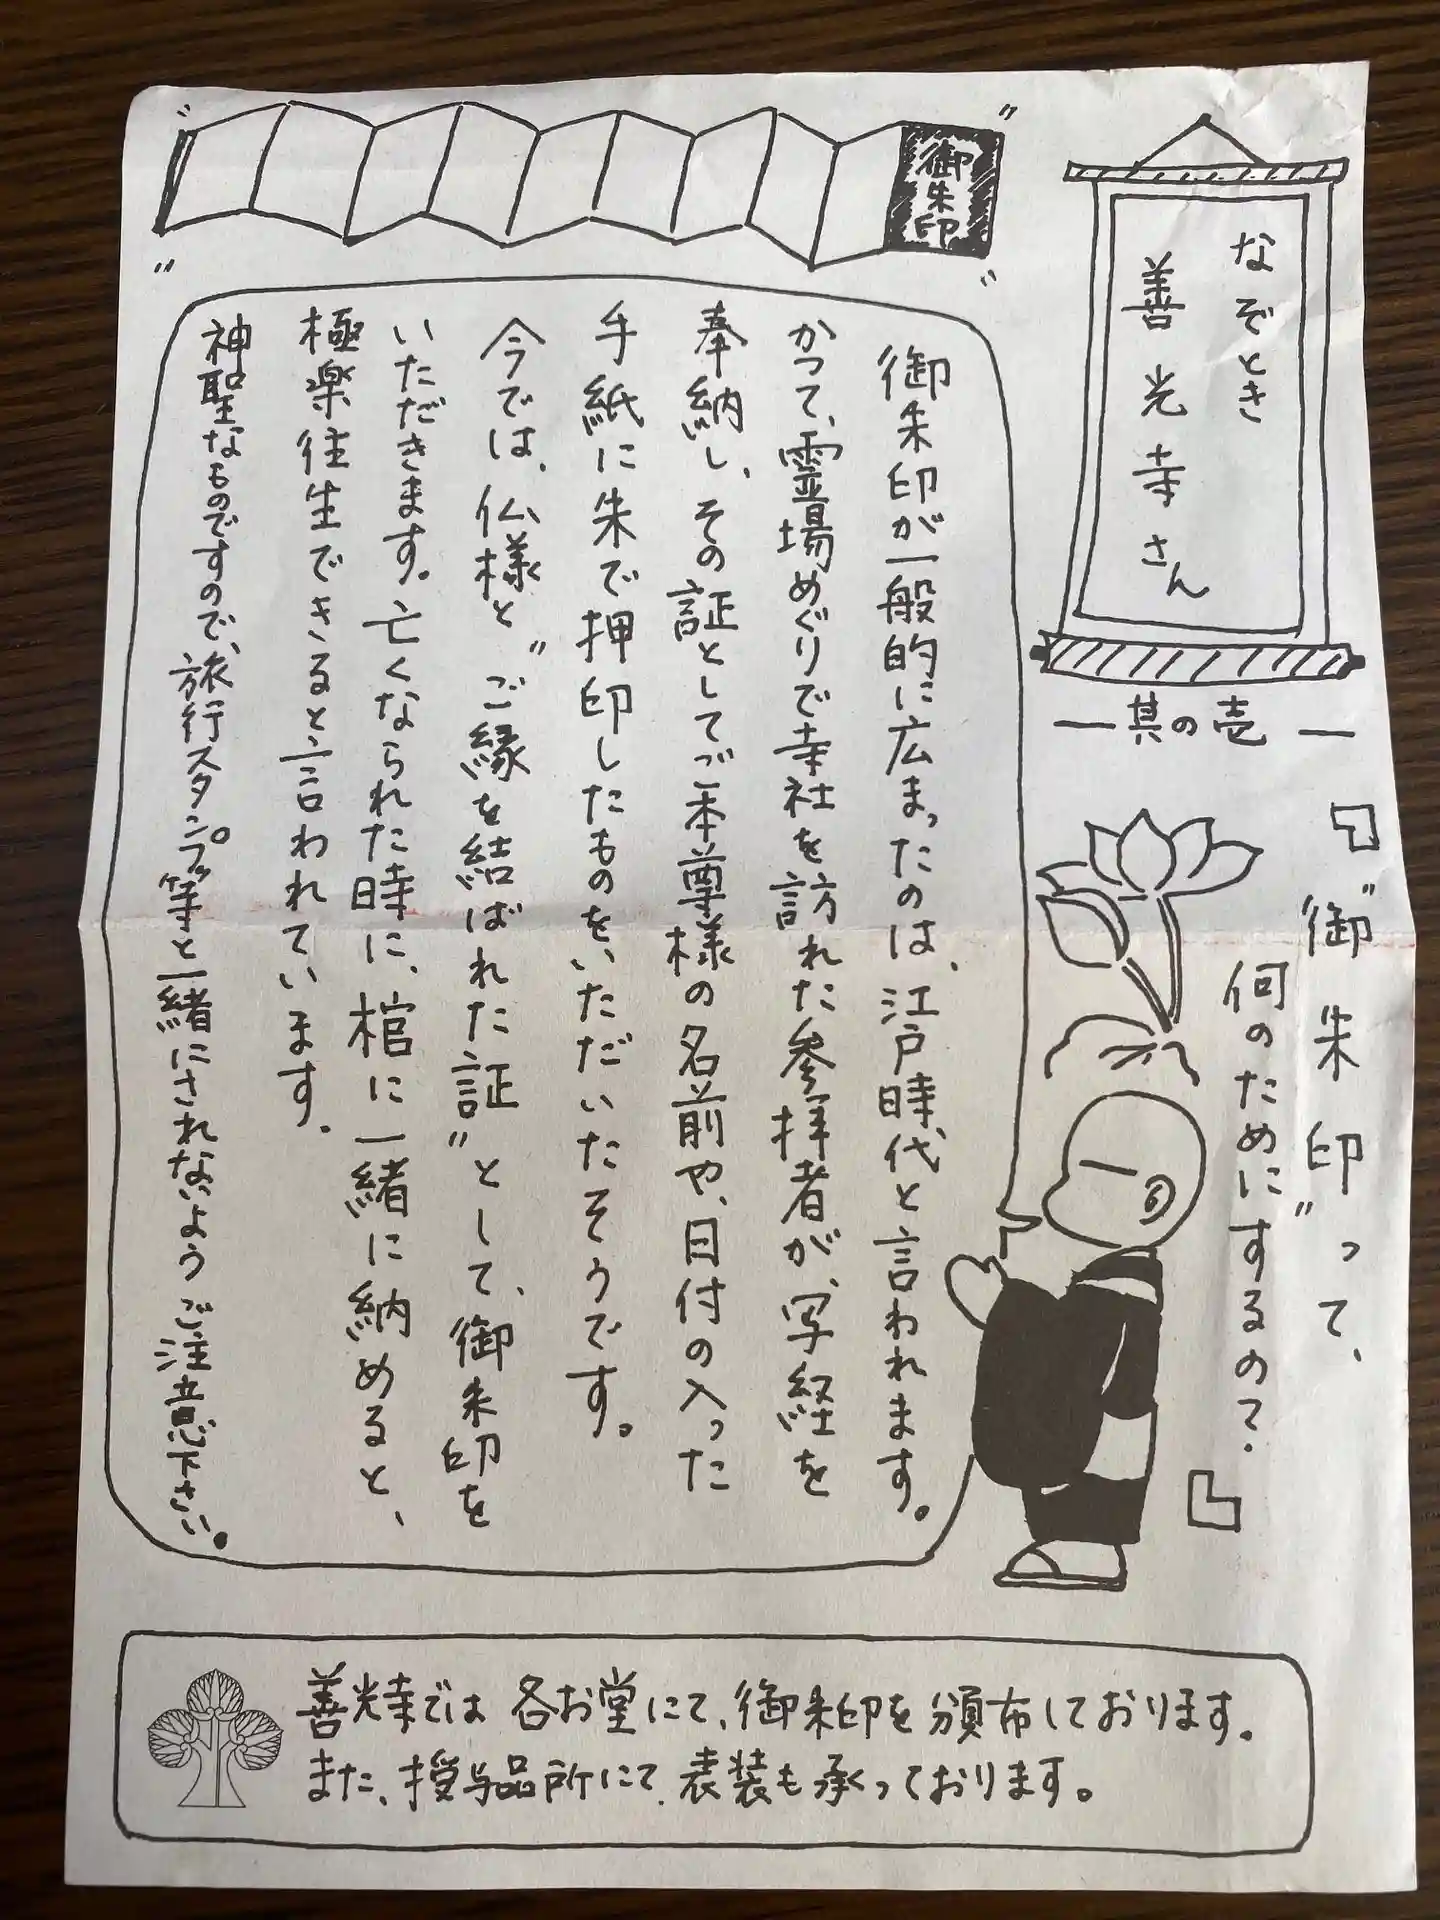 なぞとき
善光寺さん
一其の壱一
『"御朱印"って、
何のためにするの？』
御朱印
御朱印が一般的に広まったのは、江戸時代と言われます。
かつて、霊場めぐりで寺社を訪れた参拝者が、写経を
奉納し、その証としてご本尊様の名前や、日付の入った
手紙に朱で押印したものをいただいたそうです。
今では、仏様と"ご縁を結ばれた証"として、御朱印を
いただきます。亡くなられた時に、棺に一緒に納めると、
極楽往生できると言われています。
神聖なものですので、旅行スタンプ等と一緒にされないようご注意下さい。
善光寺では各お堂にて、御朱印を頒布しております。
また、授与品所にて、表装も承っております。